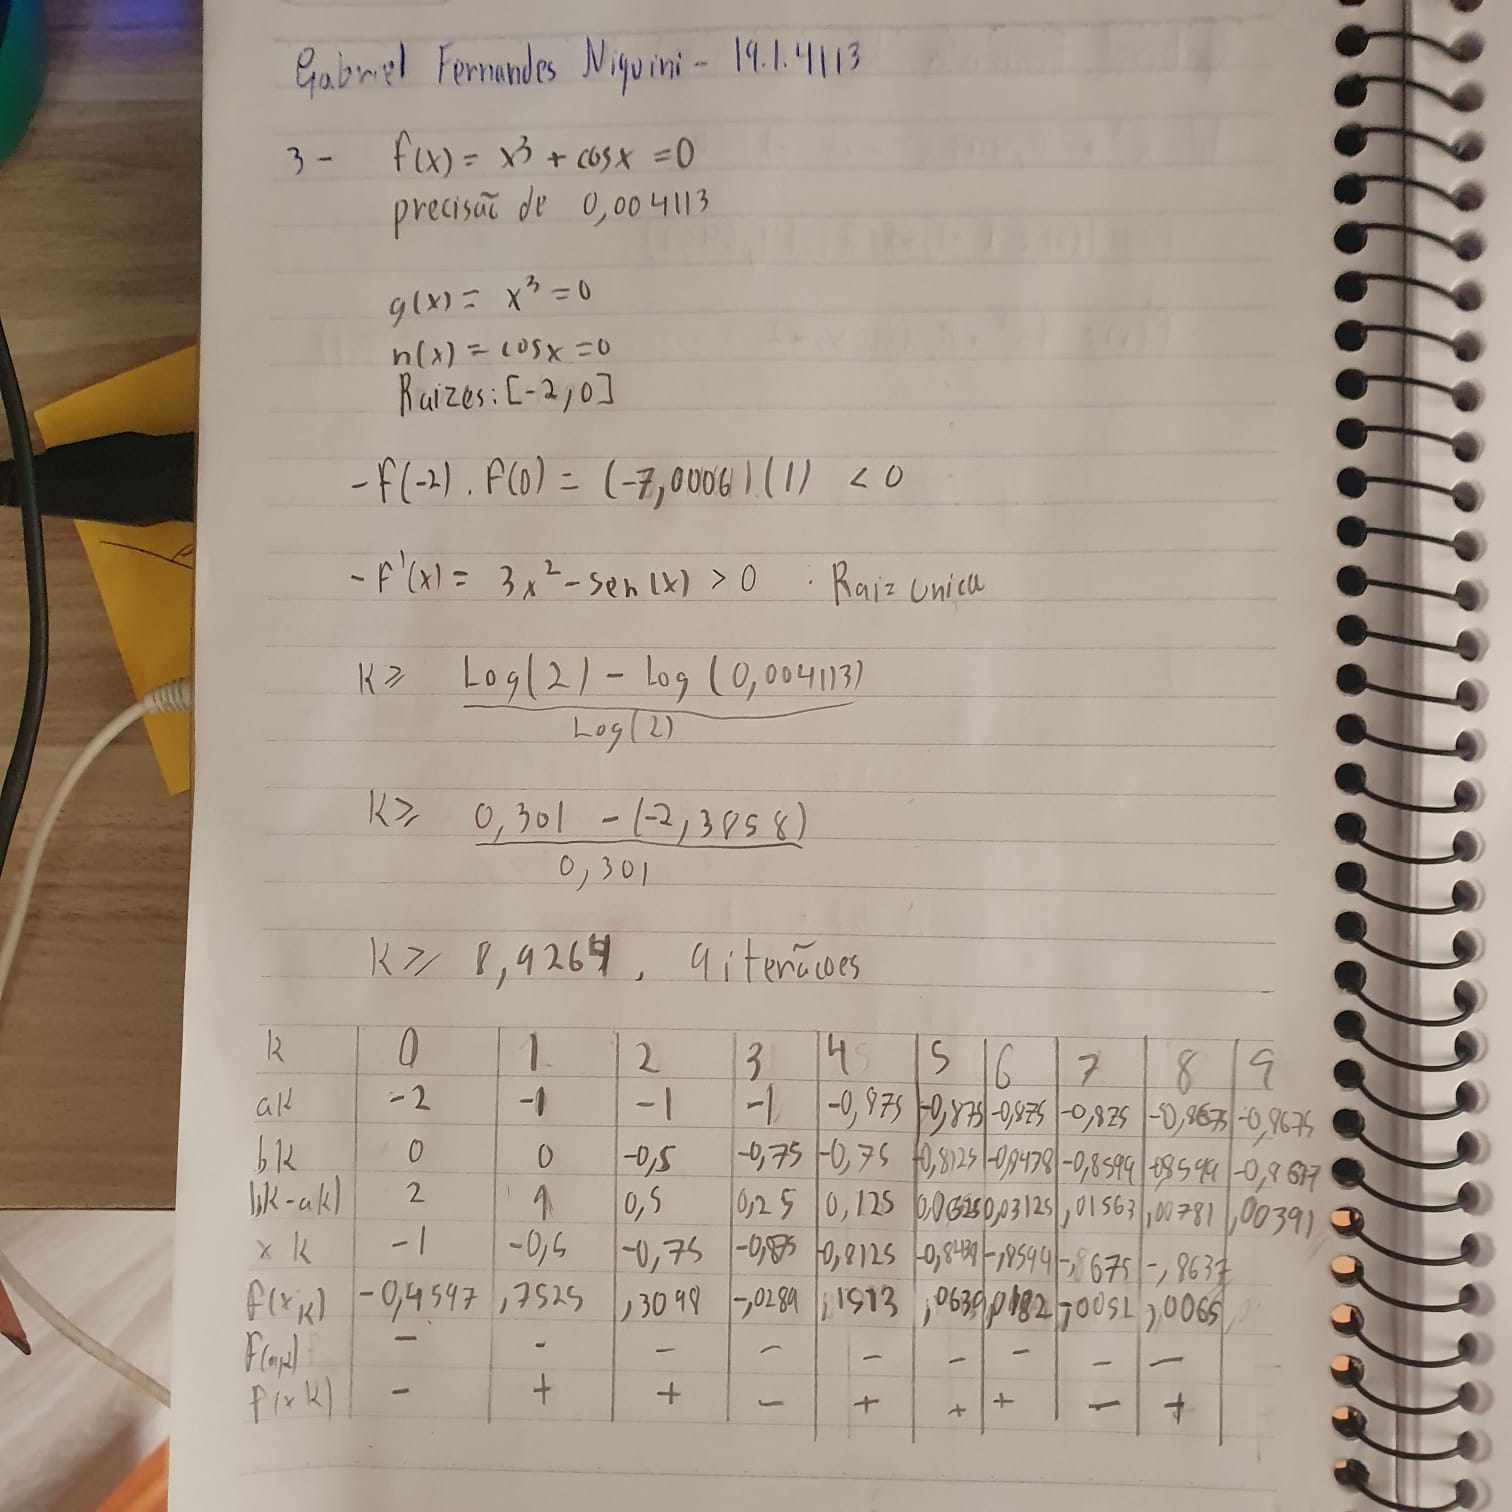 Gabriel Fernandes Niquini - 19.1.4113
3 - f(x) = x³ + cosx = 0
precisão de 0,004113
g(x) = x³ = 0
h(x) = cosx = 0
Raizes: [-2,0]
- f(-2) . f(0) = (-7,0006) (1) < 0
- f'(x) = 3x² - sen(x) > 0 . Raiz unica
K ≥ Log(2) - Log(0,004113)
Log(2)
K ≥ 0,301 - (-2,3858)
0,301
K ≥ 8,9264, 9 iterãcoes
k 0 1 2 3 4 5 6 7 8 9
ak -2 -1 -1 -1 -0,875 -0,875 -0,875 -0,875 -0,8675 -0,8675
bk 0 0 -0,5 -0,75 -0,75 -0,8125 -0,8438 -0,8594 -0,8594 -0,8637
|bk-ak| 2 1 0,5 0,25 0,125 0,0625 0,03125 ,01563 ,00781 ,00391
xk -1 -0,5 -0,75 -0,875 -0,8125 -0,8439 -,8594 -,8675 -,8637
f(xk) -0,4597 ,7525 ,3098 -,0289 ,1513 ,0639 ,0182 -,0051 ,0065
f(ak) - - - - - - - - -
f(xk) - + + - + + + - +